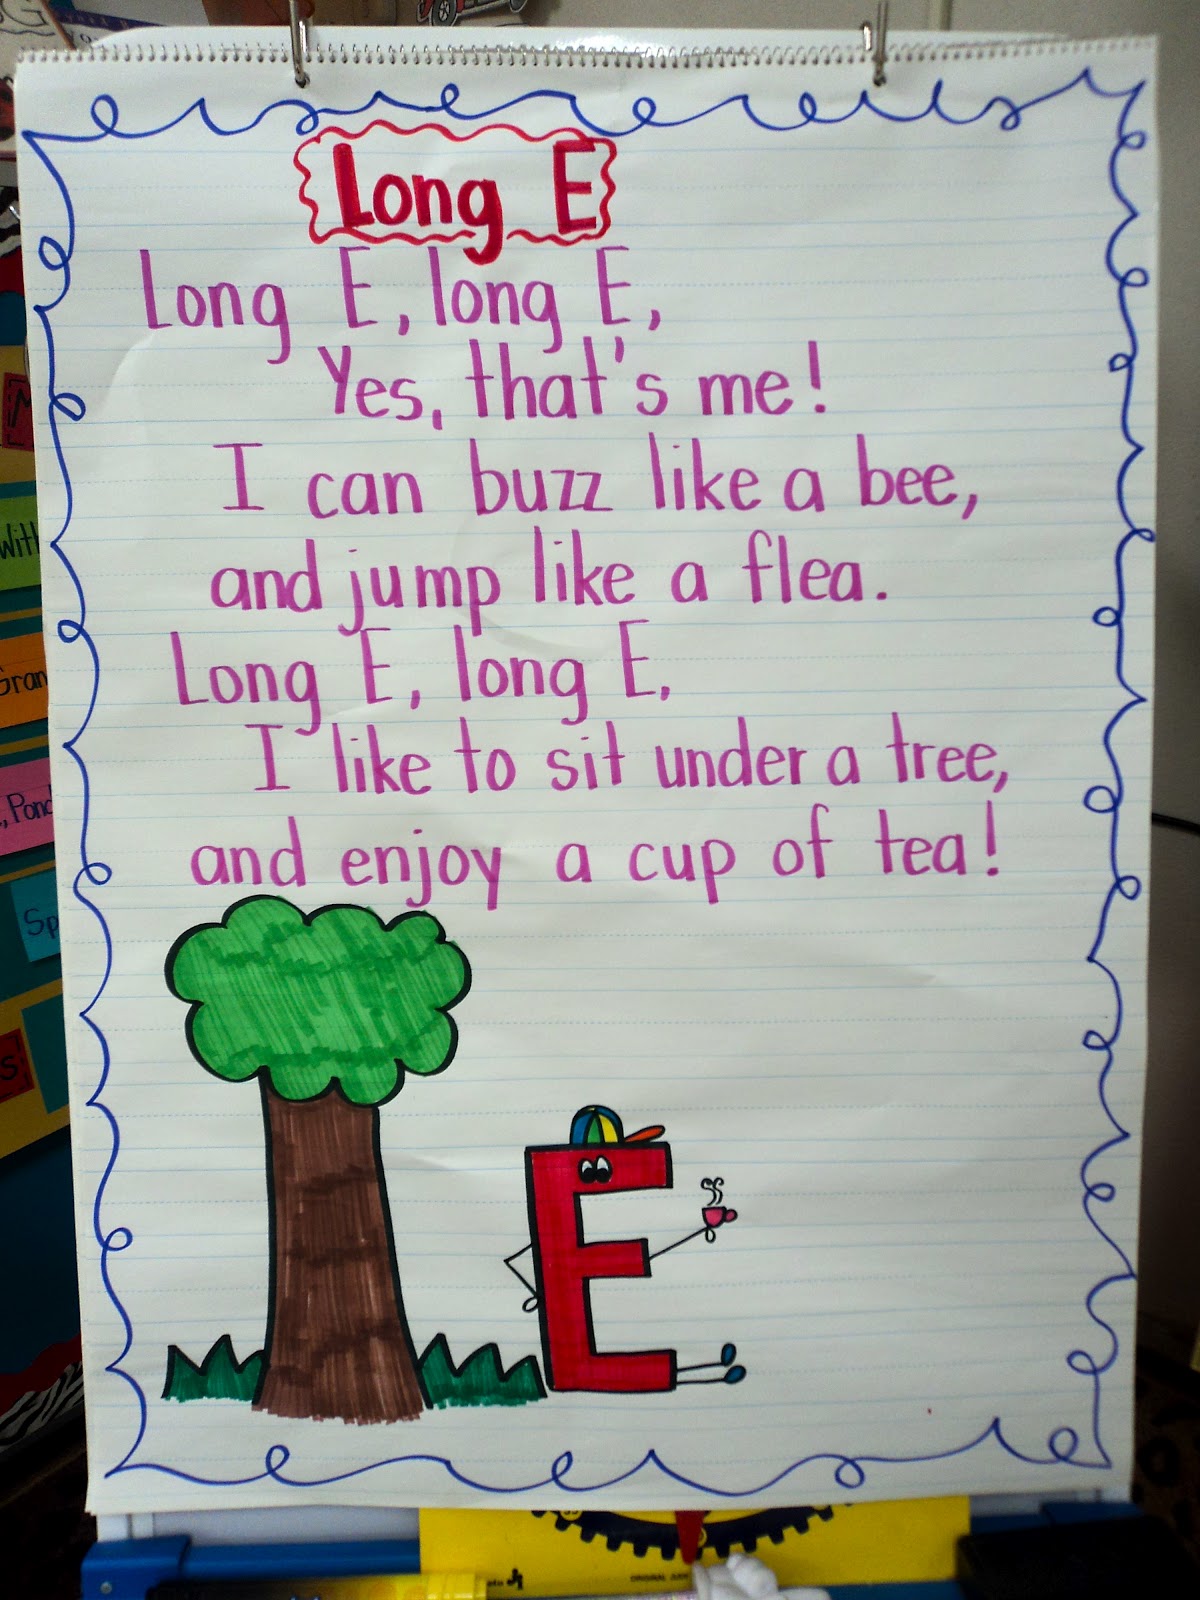 Long E
Long E, long E,
Yes, that's me!
I can buzz like a bee,
and jump like a flea.
Long E, long E,
I like to sit under a tree,
and enjoy a cup of tea!
With
Gran
, Pond
Sp